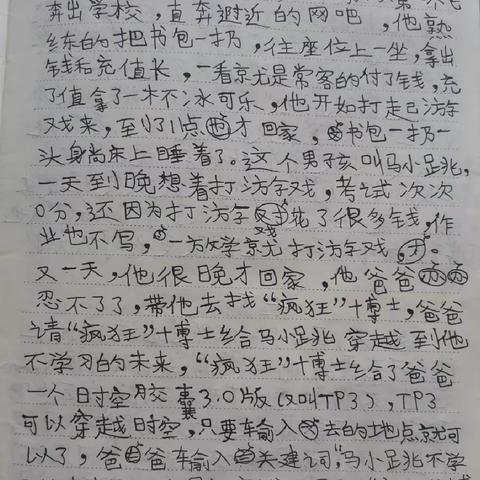 奔出学校，直奔附近的网吧，他熟
练的把书包一扔，往座位上一坐，拿出
钱和充值卡，一看就是常客的付了钱，充
了值拿了一木不冰可乐，他开始打起己游
戏来，到了1点也才回家，书包一扔一
头身尚床上睡着了。这个男孩叫马小跳，
一天到晚想着打游戏，考试次次
0分，还因为打游字戏花了很多钱，作
业也不写，一放学就打游戏，
又一天，他很晚才回家，他爸爸
忍不了了，带他去找“疯狂”博士，爸爸
请“疯狂”博士给马小跳穿越到他
不学习的未来，“疯狂”博士给了爸爸
一个时空胶囊3.0版（又叫TP3），TP3
可以穿越时空，只要输入去的地点就可
以了，爸爸输入关建词，“马小跳不学